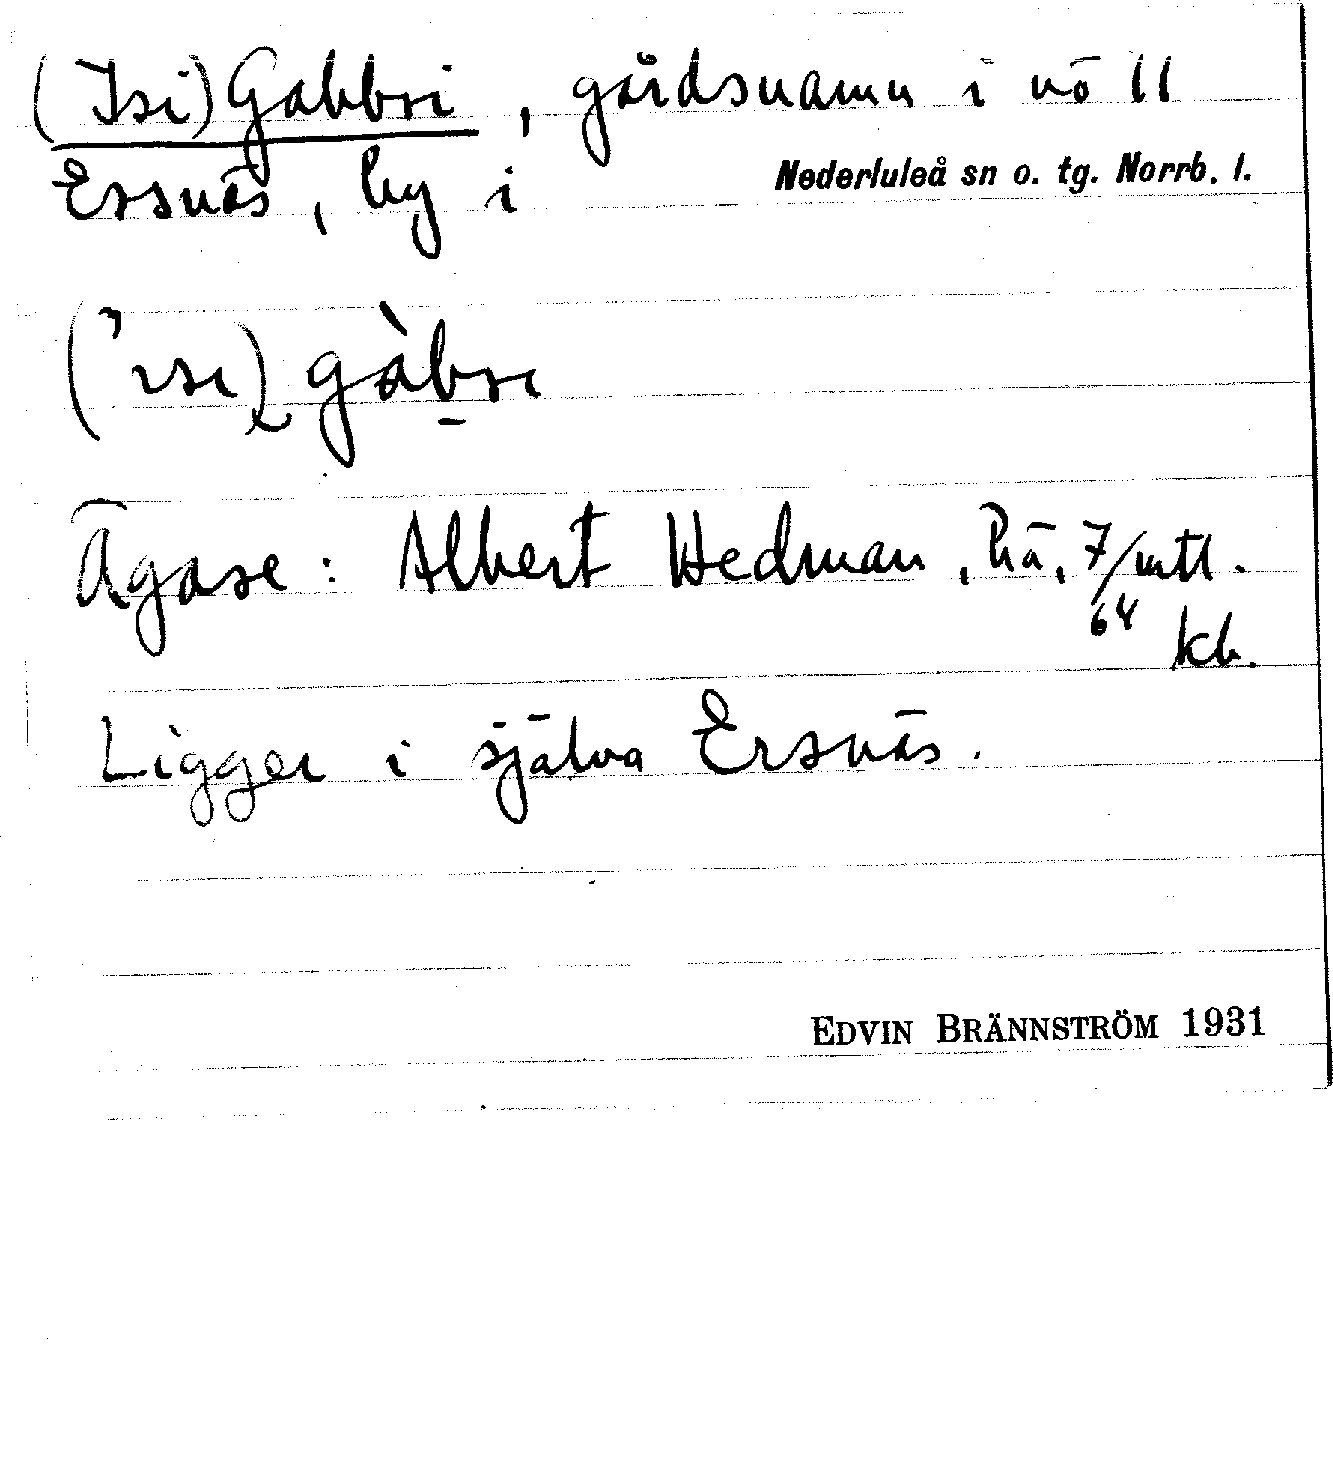 (Isi) Gabbsi, gårdsnamn i nö 11
Ersnäs, by i Nederluleå sn o. tg. Norrb. l.
('ısı) gàbsı
Ägare: Albert Hedman, hä, 7/64 mtl.
kb.
Ligger i själva Ersnäs.
EDVIN BRÄNNSTRÖM 1931